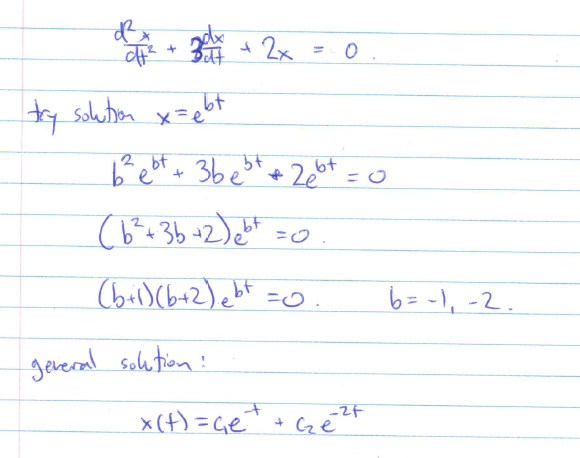 d²x/dt² + 3dx/dt + 2x = 0.
try solution x = e^bt
b²e^bt + 3be^bt + 2e^bt = 0
(b² + 3b + 2)e^bt = 0.
(b+1)(b+2)e^bt = 0. b = -1, -2.
general solution:
x(t) = c₁e^-t + c₂e^-2t